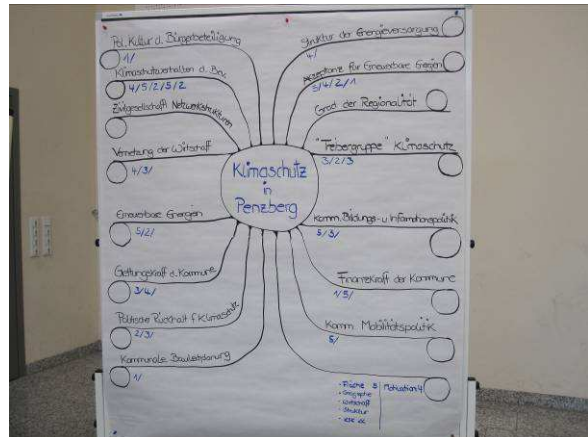 Pol. Kultur d. Bürgerbeteiligung
1/
Klimaschutzverhalten d. Bev.
4/5/2/5/2
Zivilgesellschaftl. Netzwerkstrukturen
Vernetzung der Wirtschaft
4/3/
Erneuerbare Energien
5/2/
Gestaltungskraft d. Kommune
3/4/
Politische Rückhalt f. Klimaschutz
2/3/
Kommunale Bauleitplanung
1/
Klimaschutz
in
Penzberg
Struktur der Energieversorgung
4/
Akzeptanz für Erneuerbare Energien
3/4/2/1
Grad der Regionalität
"Treibergruppe" Klimaschutz
3/2/3
Komm. Bildungs- u. Informationspolitik
5/3/
Finanzkraft der Kommune
1/5/
Komm. Mobilitätspolitik
5/
- Fläche 5 Motivation 4
- Geographie
- Wirtschaft
- Struktur